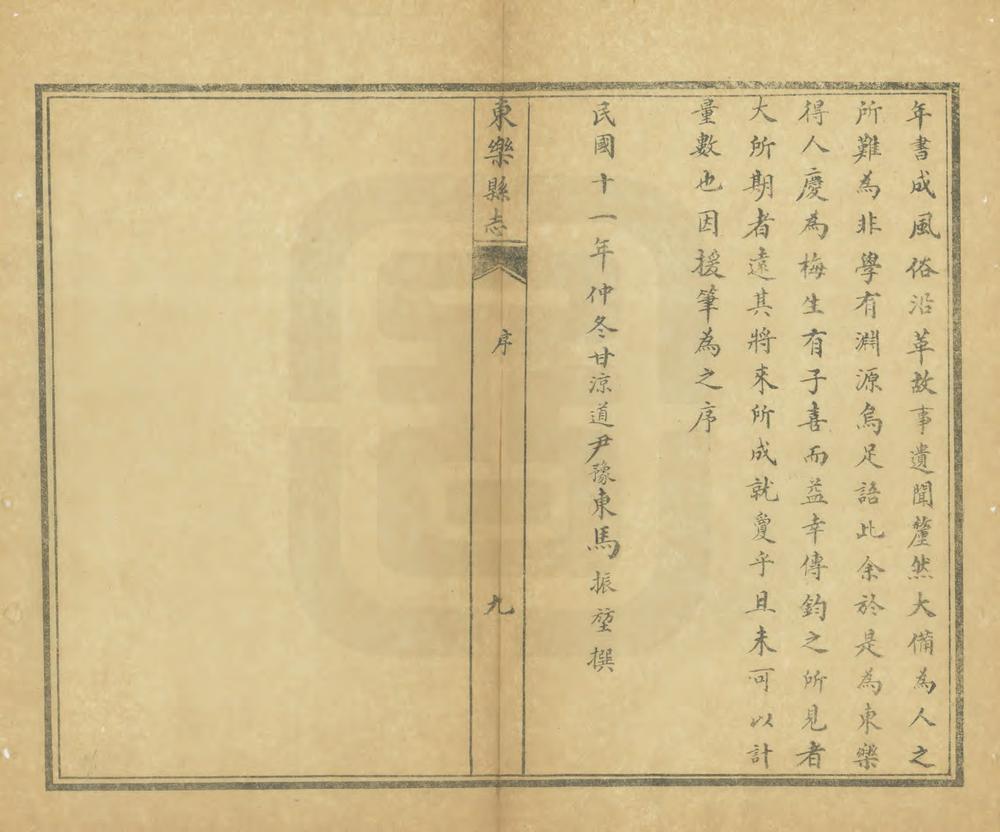 年書成風俗沿革故事遺聞釐然大備為人之
所難為非學有淵源烏足語此余於是為東樂
得人慶為梅生有子喜而益幸傳鈞之所見者
大所期者遠其將來所成就敻乎且未可以計
量數也因援筆為之序
民國十一年仲冬甘涼道尹豫東馬振堃撰
東樂縣志
序
九